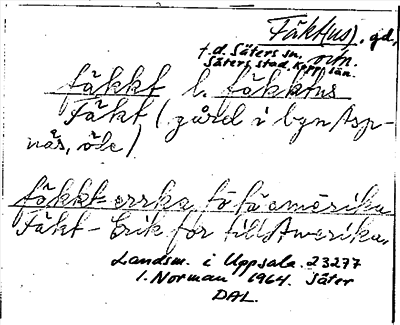 Fäkt(us), gd,
t.d. Säters sn. och
Säters stad, Kopp. län.
fäkkt l. fäkktus
Fäkt (gård i byn Asp-
näs, öde)
fäkkt-errka fo tä amerika
Fäkt-Erik for till Amerika.
Landsm. i Uppsala. 23277
I. Norman 1964. Säter
DAL.